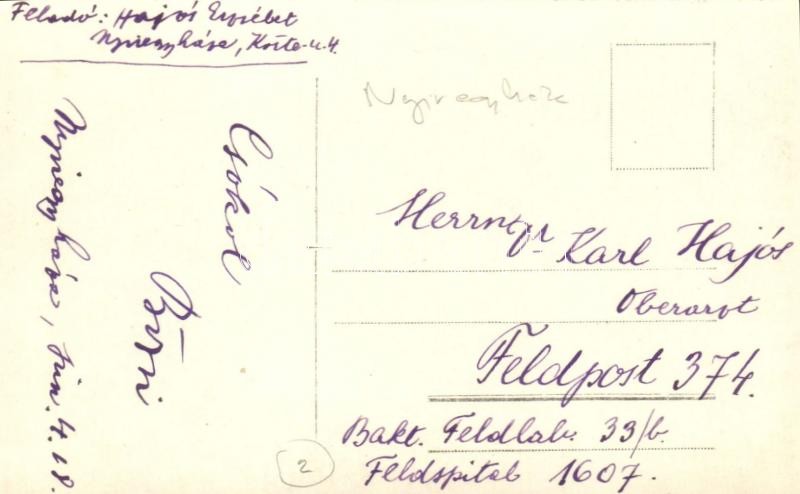 Feladó: Hajós Erzsébet
Nyiregyháza, Kótai-u. 4.
Nyiregyháza, Jun. 4. 18.
Csókol
Bözsi
Nyiregyháza
Herrn Karl Hajós
Oberarzt
Feldpost 374.
Bakt. Feldlab. 33/b.
Feldspital 1607.
2